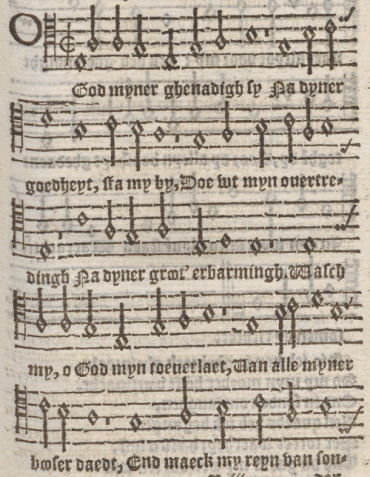 O
God myner ghenadigh sy Na dyner
goedheyt, sta my by, Doe wt myn ouertre-
dingh Na dyner groot' erbarmingh. Wasch
my, o God myn toeuerlaet, Van alle myner
booser daedt, End maeck my reyn van son-